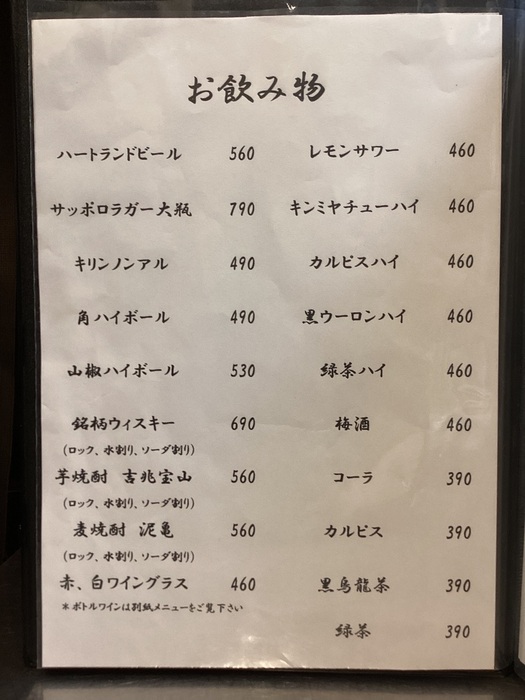 お飲み物
ハートランドビール 560
サッポロラガー大瓶 790
キリンノンアル 490
角ハイボール 490
山椒ハイボール 530
銘柄ウィスキー 690
(ロック、水割り、ソーダ割り)
芋焼酎 吉兆宝山 560
(ロック、水割り、ソーダ割り)
麦焼酎 泥亀 560
(ロック、水割り、ソーダ割り)
赤、白ワイングラス 460
*ボトルワインは別紙メニューをご覧下さい
レモンサワー 460
キンミヤチューハイ 460
カルピスハイ 460
黒ウーロンハイ 460
緑茶ハイ 460
梅酒 460
コーラ 390
カルピス 390
黒烏龍茶 390
緑茶 390